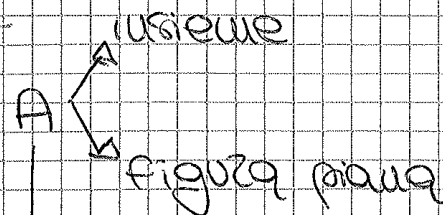 insieme
A
figura piana